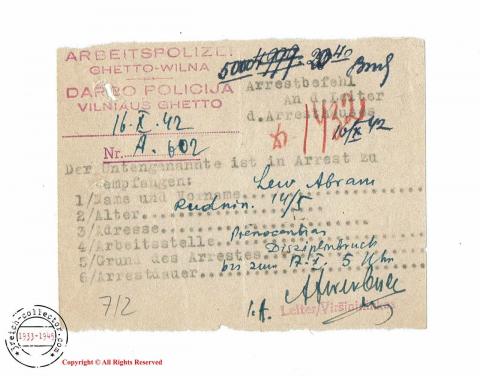 ARBEITSPOLIZEI
GHETTO-WILNA
DARBO POLICIJA
VILNIAUS GHETTO
16.X.42
Nr. A. 602
Arrestbefehl
An d. Leiter
d. Arresthauses
16/X 42
Der Untengenannte ist in Arrest zu
empfangen:
1/Name und Vorname... Lew Abram
2/Alter...
3/Adresse... Rudnin. 14/I
4/Arbeitsstelle...
5/Grund des Arrestes... Disziplinbruch
6/Arrestdauer... bis zum 17.X. 5 Uhr
I.A.
Leiter/Viršininkas
712
3reich-collector.com
1933-1945
Copyright © All Rights Reserved